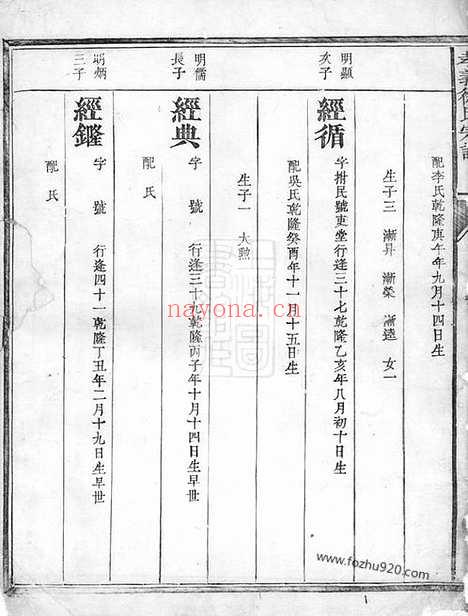 配李氏乾隆庚午年九月十四日生
生子三 漸昇 漸榮 漸逵 女一
明顯次子
經循
字拊民號吏堂行逢三十七乾隆乙亥年八月初十日生
配吳氏乾隆癸酉年十一月十五日生
生子一 大勲
明儒長子
經典
字 號 行逢三十九乾隆丙子年十月十四日生早世
配 氏
明炳三子
經鑼
字 號 行逢四十一乾隆丁丑年二月十九日生早世
配 氏
nayona.cn
www.fozhu920.com